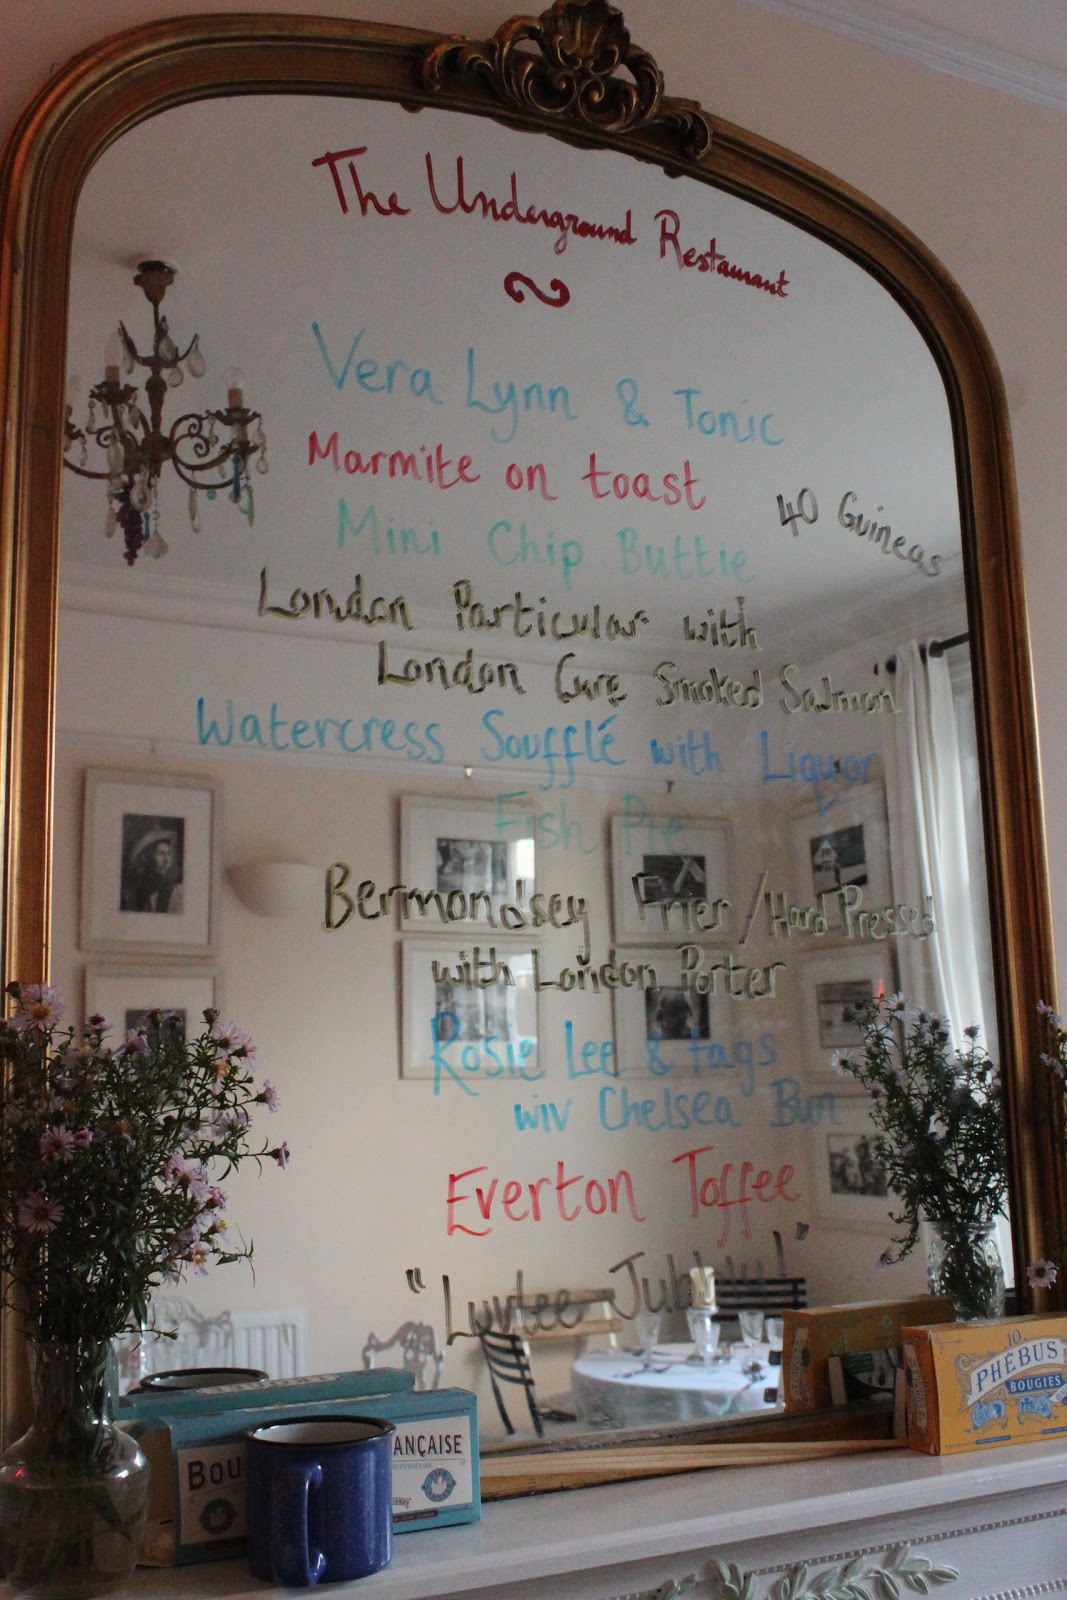 The Underground Restaurant
Vera Lynn & Tonic
Marmite on toast
40 Guineas
Mini Chip Buttie
London Particular with
London Cure Smoked Salmon
Watercress Soufflé with Liquor
Fish Pie
Bermondsey Frier / Hard Pressed
with London Porter
Rosie Lee & tags
wiv Chelsea Bun
Everton Toffee
"Luvlee Jubbly!"
10
PHÉBUS
BOUGIES
BOU
ANÇAISE